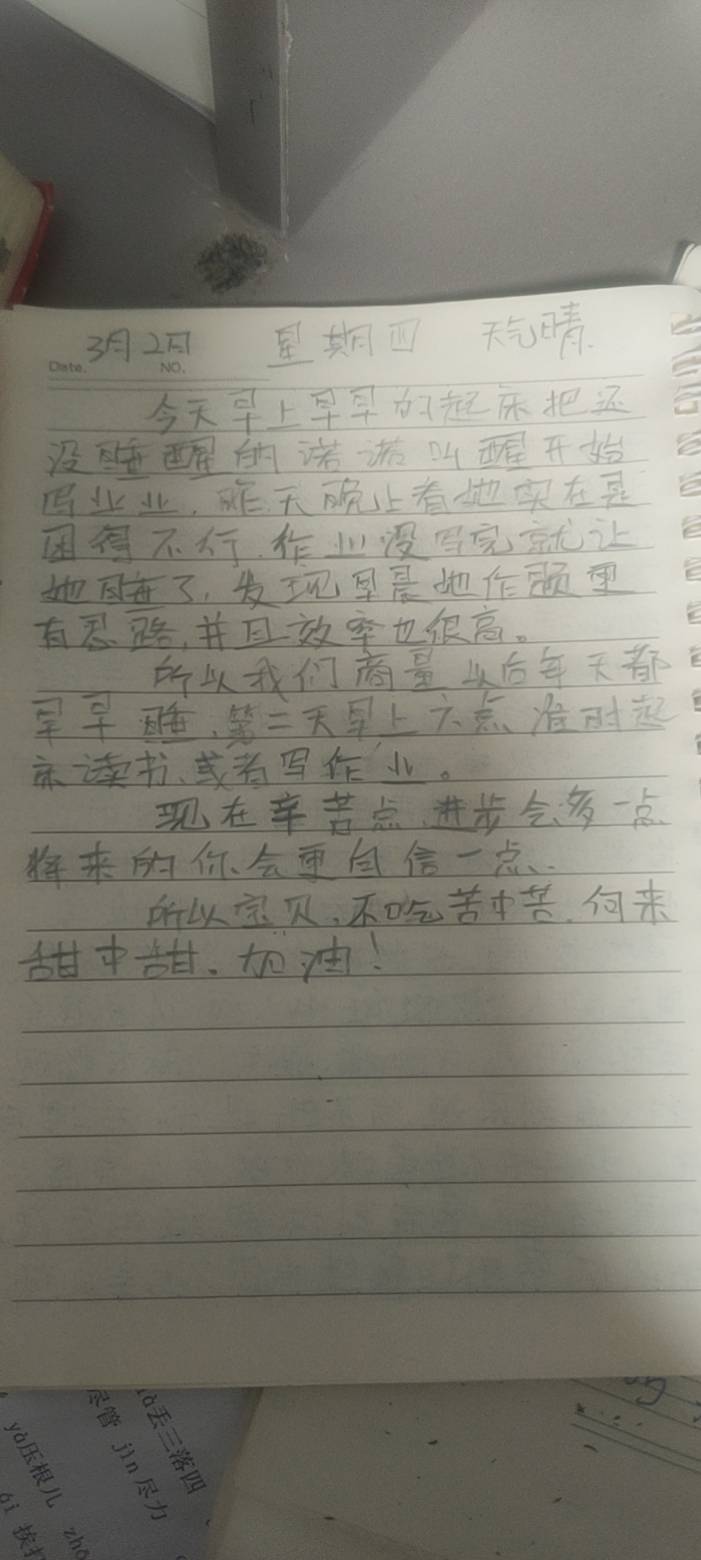 3月2日 星期四 天气晴.
Date. NO.
今天早上早早的起床把还
没睡醒的诺诺叫醒开始
写业业,昨天晚上看她实在是
困得不行.作业没写完就让
她睡了,发现早晨她作题更
有思路,并且效率也很高。
所以我们商量以后每天都
早早睡,第二天早上六点准时起
床读书、或者写作业。
现在辛苦点进步会多一点
将来的你会更自信一点.
所以宝贝,不吃苦中苦,何来
甜中甜。加油!
丢三落四
尽管 jìn 尽力
yà压根儿